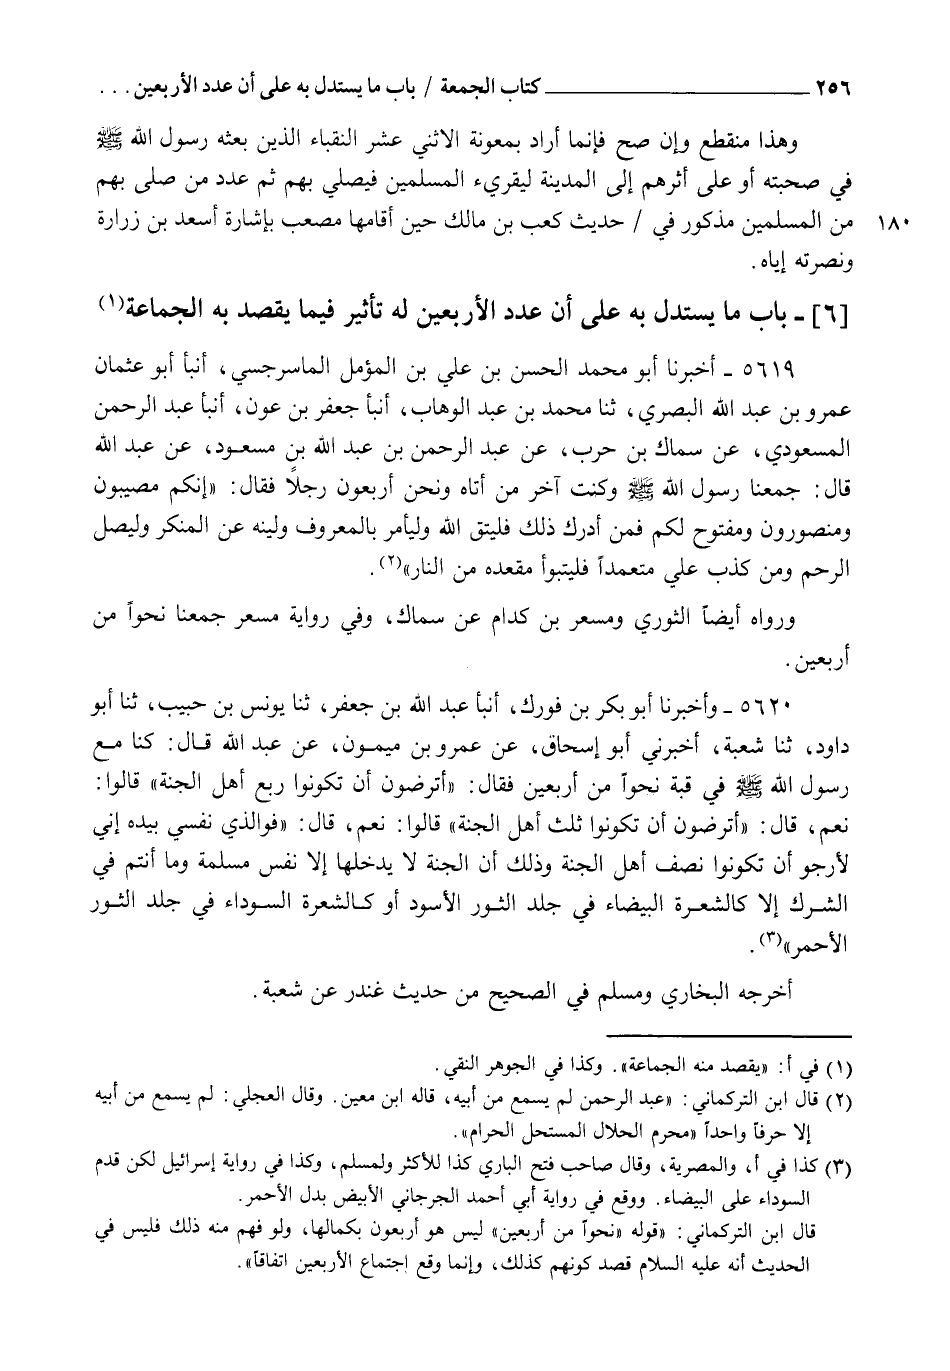 ٢٥٦ ــــــــــــــــــــ كتاب الجمعة / باب ما يستدل به على أن عدد الأربعين . . .
وهذا منقطع وإن صح فإنما أراد بمعونة الاثني عشر النقباء الذين بعثه رسول الله ﷺ
في صحبته أو على أثرهم إلى المدينة ليقريء المسلمين فيصلي بهم ثم عدد من صلى بهم
١٨٠ من المسلمين مذكور في / حديث كعب بن مالك حين أقامها مصعب بإشارة أسعد بن زرارة
ونصرته إياه .
[٦] ـ باب ما يستدل به على أن عدد الأربعين له تأثير فيما يقصد به الجماعة(١)
٥٦١٩ ـ أخبرنا أبو محمد الحسن بن علي بن المؤمل الماسرجسي، أنبأ أبو عثمان
عمرو بن عبد الله البصري، ثنا محمد بن عبد الوهاب، أنبأ جعفر بن عون، أنبأ عبد الرحمن
المسعودي، عن سماك بن حرب، عن عبد الرحمن بن عبد الله بن مسعود، عن عبد الله
قال: جمعنا رسول الله ﷺ وكنت آخر من أتاه ونحن أربعون رجلاً فقال: «إنكم مصيبون
ومنصورون ومفتوح لكم فمن أدرك ذلك فليتق الله وليأمر بالمعروف ولينه عن المنكر وليصل
الرحم ومن كذب علي متعمداً فليتبوأ مقعده من النار»(٢).
ورواه أيضاً الثوري ومسعر بن كدام عن سماك، وفي رواية مسعر جمعنا نحواً من
أربعين.
٥٦٢٠ ـ وأخبرنا أبو بكر بن فورك، أنبأ عبد الله بن جعفر، ثنا يونس بن حبيب، ثنا أبو
داود، ثنا شعبة، أخبرني أبو إسحاق، عن عمرو بن ميمون، عن عبد الله قال: كنا مع
رسول الله ﷺ في قبة نحواً من أربعين فقال: «أترضون أن تكونوا ربع أهل الجنة» قالوا:
نعم، قال: «أترضون أن تكونوا ثلث أهل الجنة» قالوا: نعم، قال: «فوالذي نفسي بيده إني
لأرجو أن تكونوا نصف أهل الجنة وذلك أن الجنة لا يدخلها إلا نفس مسلمة وما أنتم في
الشرك إلا كالشعرة البيضاء في جلد الثور الأسود أو كالشعرة السوداء في جلد الثور
الأحمر»(٣).
أخرجه البخاري ومسلم في الصحيح من حديث غندر عن شعبة.
(١) في أ: «يقصد منه الجماعة». وكذا في الجوهر النقي.
(٢) قال ابن التركماني: «عبد الرحمن لم يسمع من أبيه، قاله ابن معين. وقال العجلي: لم يسمع من أبيه
إلا حرفاً واحداً «محرم الحلال المستحل الحرام».
(٣) كذا في أ، والمصرية، وقال صاحب فتح الباري كذا للأكثر ولمسلم، وكذا في رواية إسرائيل لكن قدم
السوداء على البيضاء. ووقع في رواية أبي أحمد الجرجاني الأبيض بدل الأحمر.
قال ابن التركماني: «قوله «نحواً من أربعين» ليس هو أربعون بكمالها، ولو فهم منه ذلك فليس في
الحديث أنه عليه السلام قصد كونهم كذلك، وإنما وقع اجتماع الأربعين اتفاقاً».